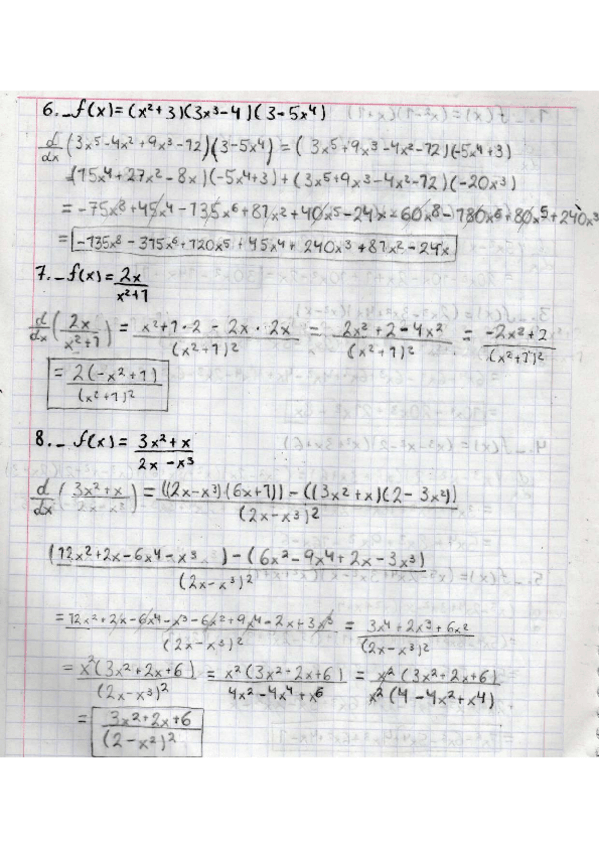 6._ f(x) = (x²+3)(3x³-4)(3-5x⁴)
d/dx (3x⁵-4x²+9x³-12)(3-5x⁴) = (3x⁵+9x³-4x²-12)(-5x⁴+3)
(15x⁴+27x²-8x)(-5x⁴+3)+(3x⁵+9x³-4x²-12)(-20x³)
= -75x⁸+45x⁴-135x⁶+81x²+40x⁵-24x-60x⁸-180x⁶+80x⁵+240x³
= -135x⁸-315x⁶+120x⁵+45x⁴+240x³+81x²-24x
7._ f(x) = 2x/(x²+1)
d/dx (2x/(x²+1)) = (x²+1·2 - 2x·2x)/(x²+1)² = (2x²+2-4x²)/(x²+1)² = (-2x²+2)/(x²+1)²
= 2(-x²+1)/(x²+1)²
8._ f(x) = (3x²+x)/(2x-x³)
d/dx ((3x²+x)/(2x-x³)) = ((2x-x³)(6x+1))-((3x²+x)(2-3x²))/(2x-x³)²
(12x²+2x-6x⁴-x³)-(6x²-9x⁴+2x-3x³)/(2x-x³)²
= (12x²+2x-6x⁴-x³-6x²+9x⁴-2x+3x³)/(2x-x³)² = (3x⁴+2x³+6x²)/(2x-x³)²
= x²(3x²+2x+6)/(2x-x³)² = x²(3x²+2x+6)/(4x²-4x⁴+x⁶) = x²(3x²+2x+6)/x²(4-4x²+x⁴)
= (3x²+2x+6)/(2-x²)²